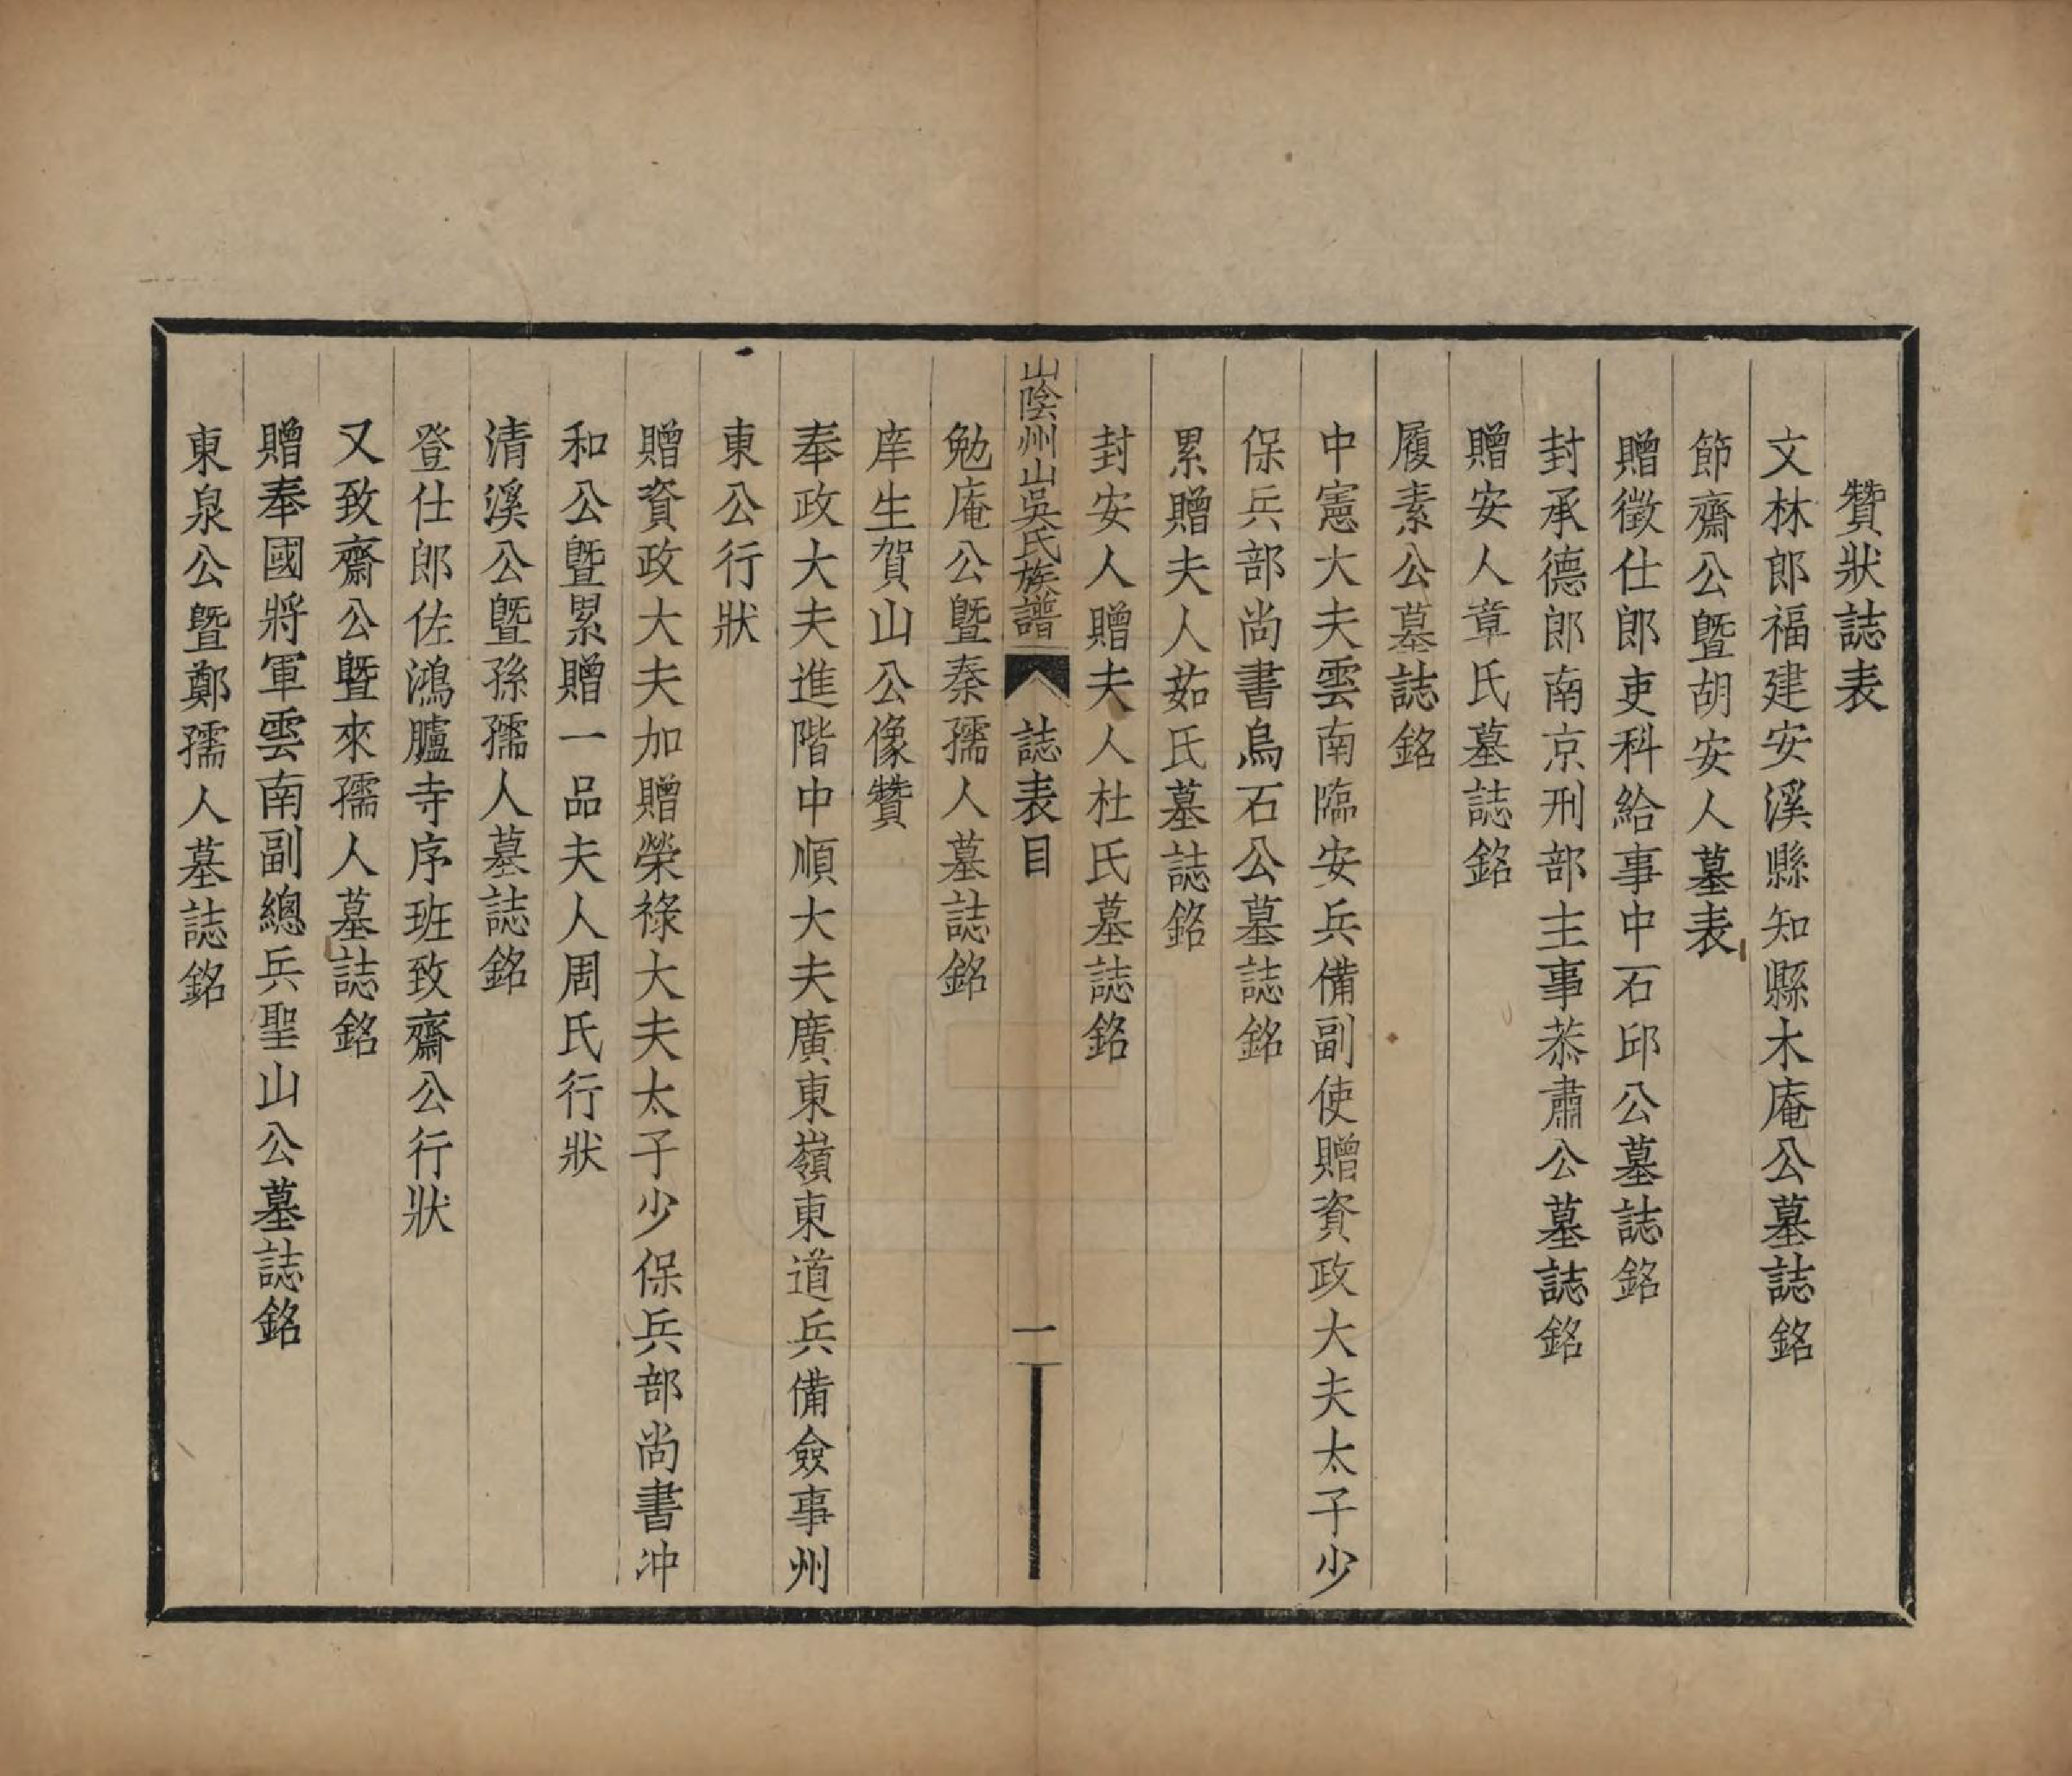 贊狀誌表
文林郎福建安溪縣知縣木庵公墓誌銘
節齋公暨胡安人墓表
贈徵仕郎吏科給事中石邱公墓誌銘
封承德郎南京刑部主事恭肅公墓誌銘
贈安人章氏墓誌銘
履素公墓誌銘
中憲大夫雲南臨安兵備副使贈資政大夫太子少
保兵部尚書鳥石公墓誌銘
累贈夫人茹氏墓誌銘
封安人贈夫人杜氏墓誌銘
山陰州山吳氏族譜 誌表目 一
勉庵公暨秦孺人墓誌銘
庠生賀山公像贊
奉政大夫進階中順大夫廣東嶺東道兵備僉事州
東公行狀
贈資政大夫加贈榮祿大夫太子少保兵部尚書冲
和公暨累贈一品夫人周氏行狀
清溪公暨孫孺人墓誌銘
登仕郎佐鴻臚寺序班致齋公行狀
又致齋公暨來孺人墓誌銘
贈奉國將軍雲南副總兵聖山公墓誌銘
東泉公暨鄭孺人墓誌銘